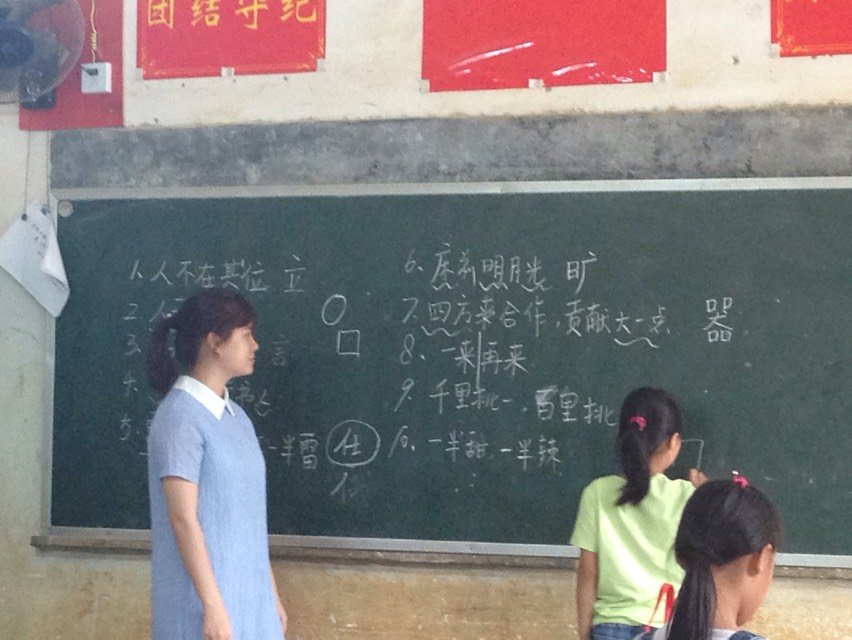 团结守纪
1.人不在其位 立
2.人
3. 言
4.
5. 一半雷 仕
6.床前明月光 旷
7.四方来合作,贡献大一点 器
8、一来再来
9.千里挑一、百里挑
10.一半甜 一半辣